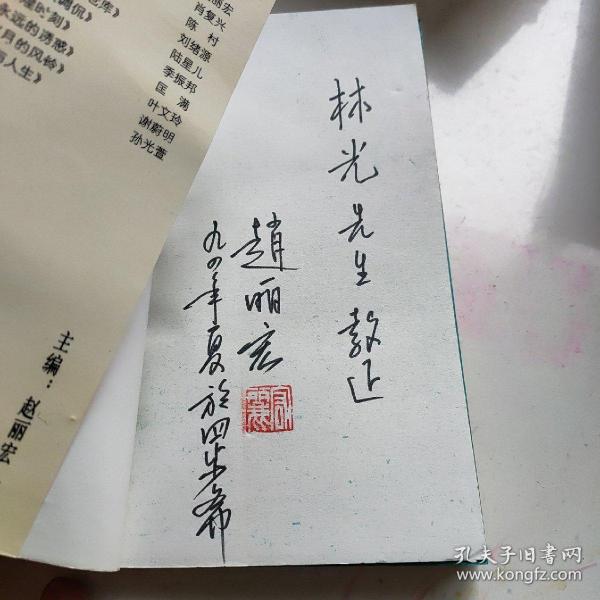 调侃》
时刻》
永远的诱惑》
月的风铃》
人生》
丽宏
肖复兴
陈 村
刘绪源
陆星儿
季振邦
匡 满
叶文玲
谢蔚明
孙光萱
主编：赵丽宏
林光先生教正
趙丽宏
九四年夏於四步斋
孔夫子旧书网
www.kongfz.com